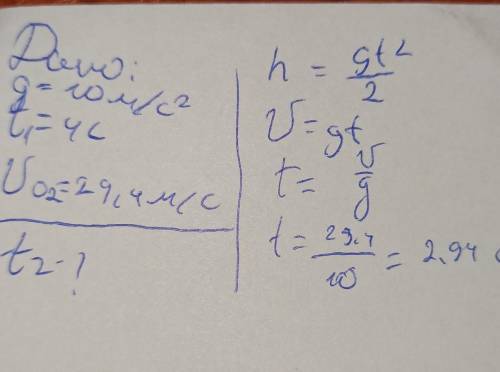 Дано:
g = 10 м/с²
t₁ = 4 с
U₀₂ = 29,4 м/с
t₂ - ?
h = gt²/2
U = gt
t = U/g
t = 29,4/10 = 2,94 с